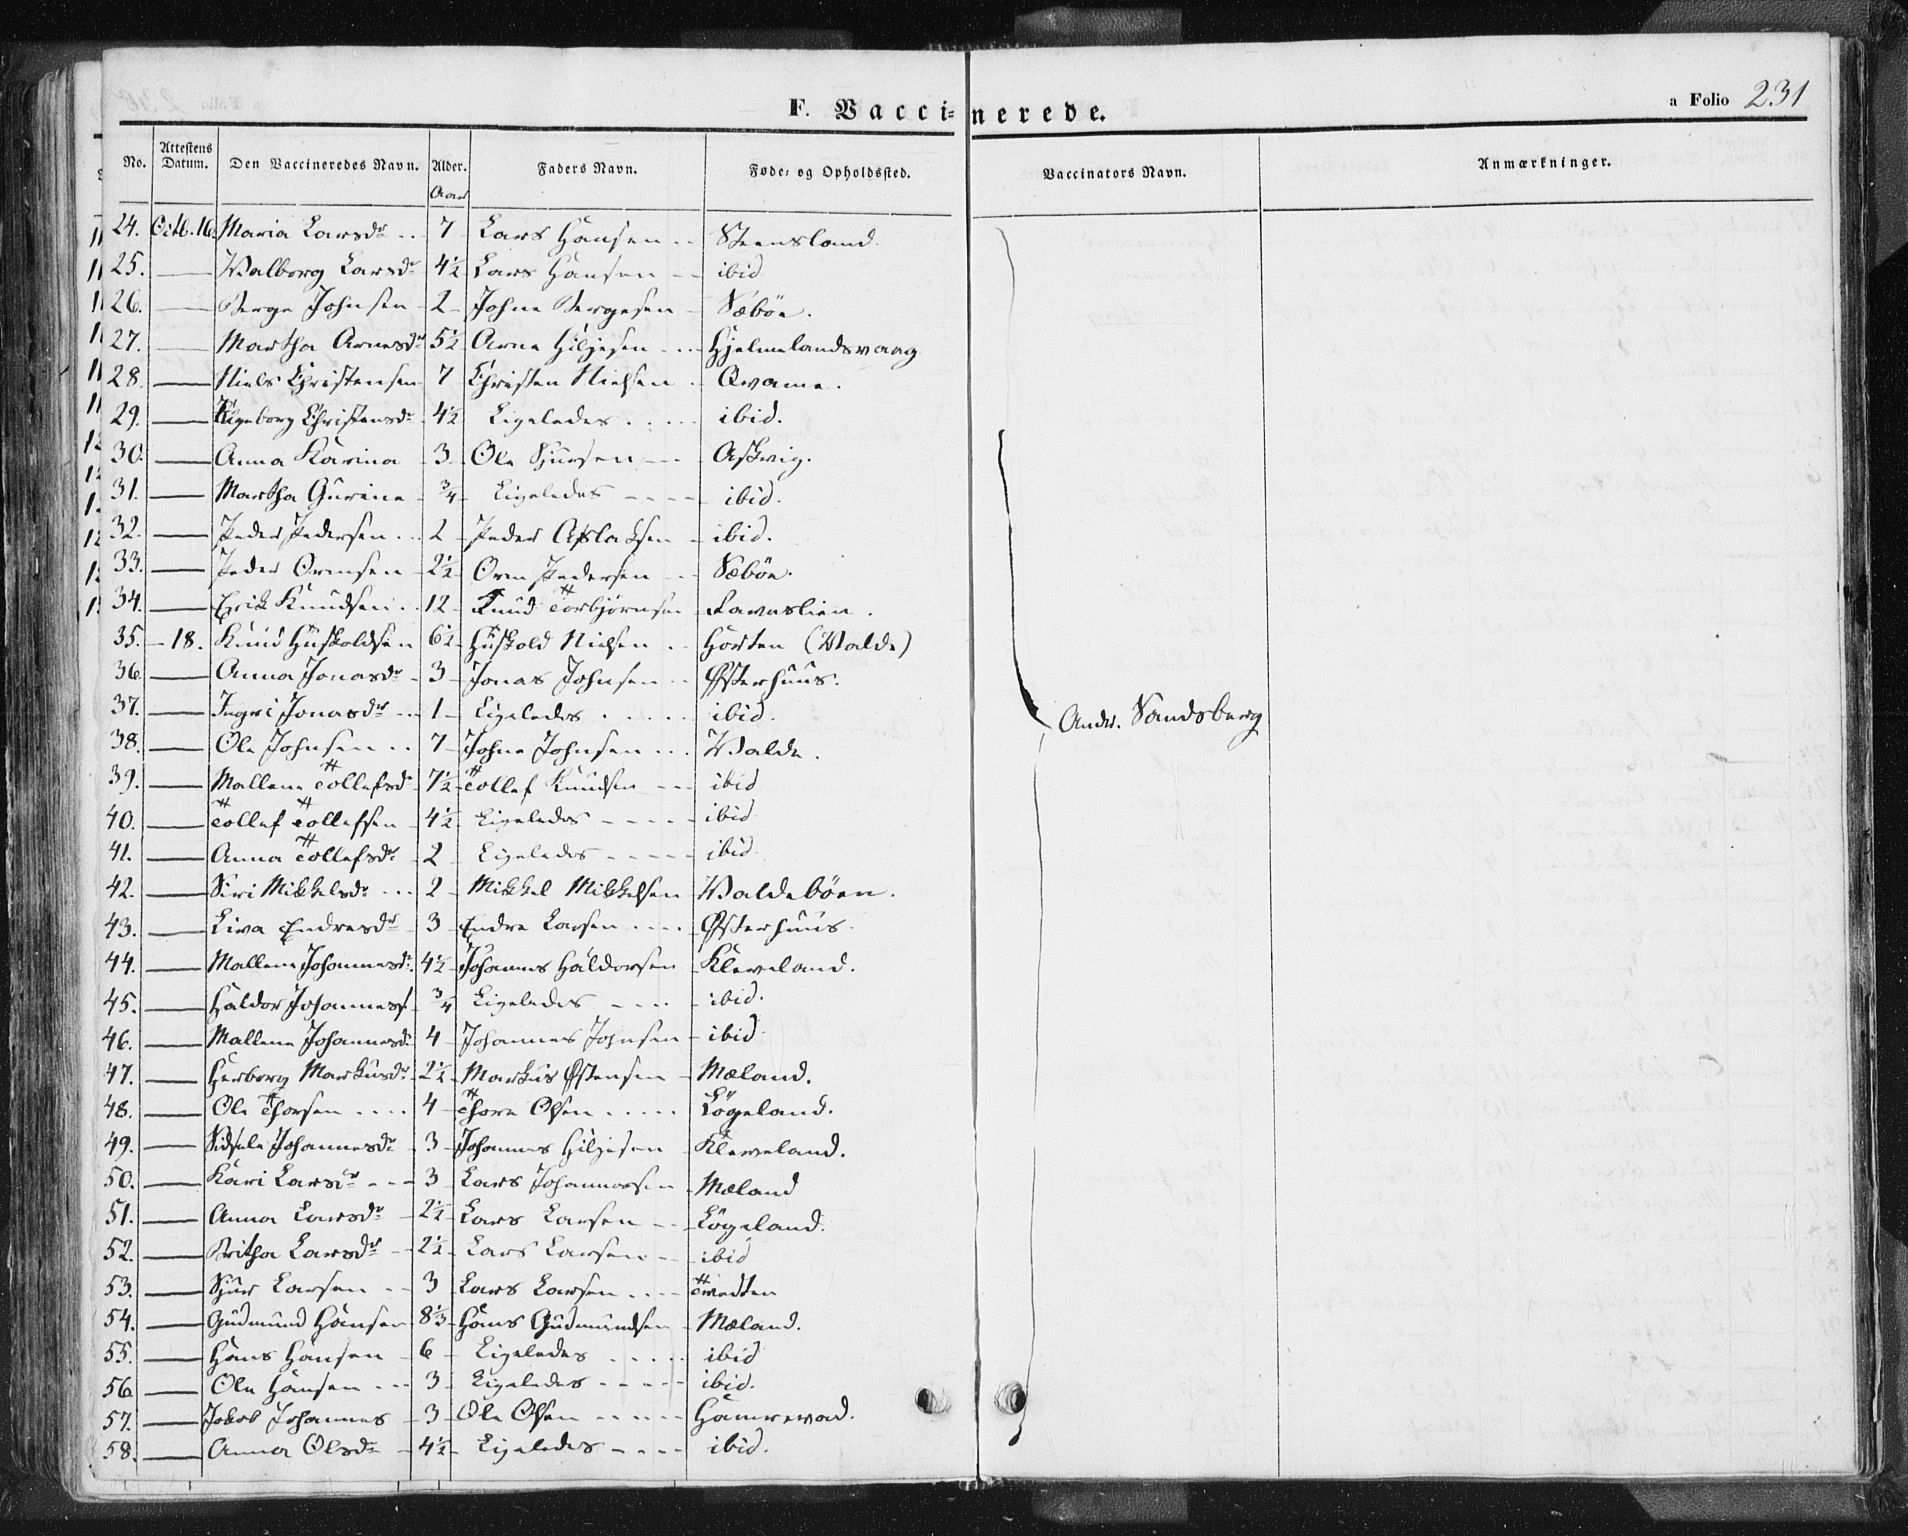 F. Vaccinerede.
a Folio 231
No. Attestens Datum. Den Vaccineredes Navn. Alder. Faders Navn. Føde- og Opholdssted. Vaccinators Navn. Anmærkninger.
Aar
24. Octb. 16. Maria Larsdr .. 7 Lars Hansen .. Steensland.
25. — Walborg Larsdr 4½ Lars Hansen -- ibid
26. — Berge Johnsen - 2 - Johne Bergesen - Sæbøe.
27. — Martha Arnesdr 5½ Arne Hiljesen ... Hjelmelandsvaag
28. — Niels Christensen 7 Christen Nielsen . Qvame.
29. — Christensdr 4½ Ligeledes ..... ibid.
30. — Anna Karina - 3 - Ole Sjursen --- Askvig.
31. — Martha Gurine - ¾ - Ligeledes ---- ibid.
32. — Peder Pedersen .. 2 - Peder Aslaksen - ibid.
33. — Peder Ormsen - 2½ - Orm Pedersen -- Sæbøe.
34. — Erik Knudsen .. 12 - Knud Torbjørnsen -
35. - 18. Knud Huskoldsen 6½ Huskold Nielsen .. Horten (Walde)
36. — Anna Jonasdr - 3 - Jonas Johnsen -- Østerhuus.
37. — Ingri Jonasdr ... 1 - Ligeledes ..... ibid.
38. — Ole Johnsen .. 7 - Johne Johnsen ... Walde.
Andr. Sandsberg
39. — Mallene Tollefsdr 7½ Tollef Knudsen --- ibid
40. — Tollef Tollefsen - 4½ - Ligeledes ----- ibid
41. — Anna Tollefsdr - 2 - Ligeledes ----- ibid.
42. — Siri Mikkelsdr ... 2 - Mikkel Mikkelsen Waldebøen.
43. — Liva Endresdr - 3 - Endre Larsen .... Østerhuus.
44. — Mallene Johannesdr. 4½ Johannes Haldorsen - Kleveland.
45. — Haldor Johanness. ¾ Ligeledes ---- ibid.
46. — Mallene Johannesdr. 4 - Johannes Johnsen - ibid
47. — Herborg Markusdr 2½ - Markus Østensen - Mæland.
48. — Ole Thorsen .... 4 - Thore Olsen ..... Løgeland.
49. — Sidsele Johannesdr - 3 - Johannes Hiljesen Kleveland.
50. — Kari Larsdr --- 3 - Lars Johannessen - Mæland
51. — Anna Larsdr - 2½ - Lars Larsen --- Løgeland.
52. — Britha Larsdr -- 2½ - Lars Larsen -- ibid
53. — Sjur Larsen -- 3 Lars Larsen .... Tvedten
54. — Gudmund Hansen 8⅓ - Hans Gudmundsen - Mæland.
55. — Hans Hansen - 6 - Ligeledes ..... ibid
56. — Ole Hansen --- 3 - Ligeledes ----- ibid.
57. — Jakob Johannes - 3 - Ole Olsen ----- Hamrevad.
58. — Anna Olsdr - 4½ - Ligeledes ---- ibid.